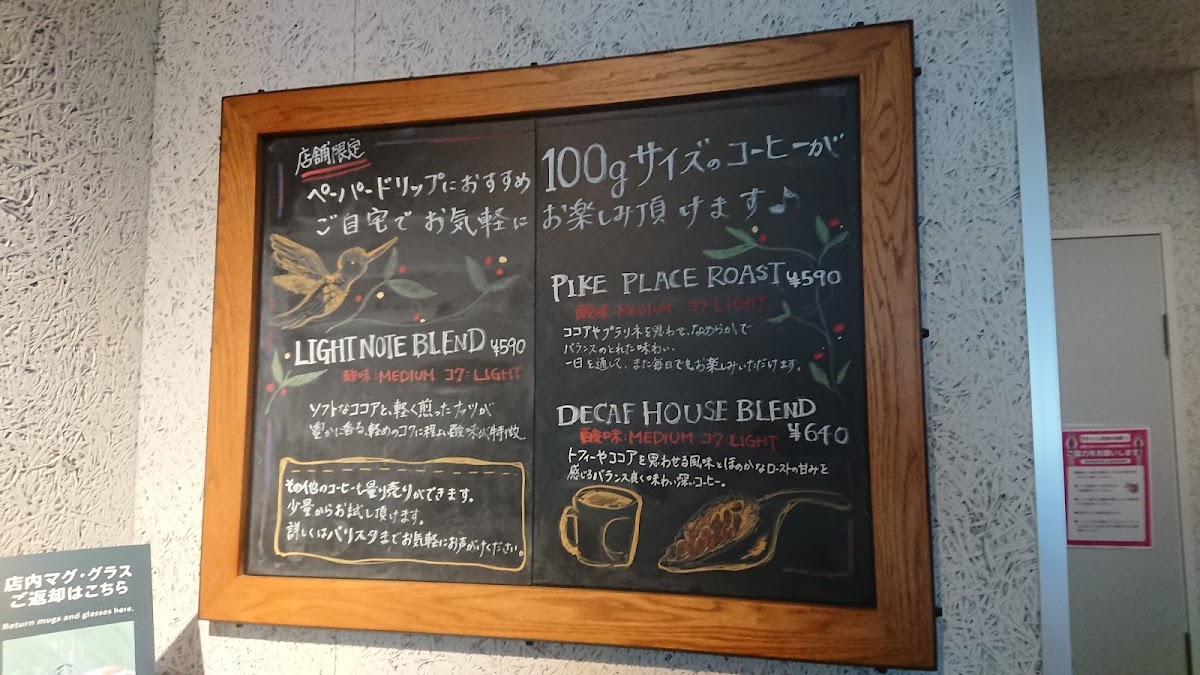 店舗限定
ペーパードリップにおすすめ
ご自宅でお気軽に
100gサイズのコーヒーが
お楽しみ頂けます♪
LIGHT NOTE BLEND ¥590
酸味:MEDIUM コク:LIGHT
ソフトなココアと、軽く煎ったナッツが
豊かに香る、軽めのコクに程よい酸味が特徴
その他のコーヒーも量り売りができます。
少量からお試し頂けます。
詳しくはバリスタまでお気軽にお声がけください。
PIKE PLACE ROAST ¥590
酸味:MEDIUM コク:LIGHT
ココアやプラリネを思わせ、なめらかで
バランスのとれた味わい.
一日を通して、また毎日でもお楽しみいただけます。
DECAF HOUSE BLEND
¥640
酸味:MEDIUM コク:LIGHT
トフィーやココアを思わせる風味とほのかなローストの甘みを
感じるバランス良く味わい深いコーヒー。
店内マグ・グラス
ご返却はこちら
Return mugs and glasses here.
ご協力をお願いします